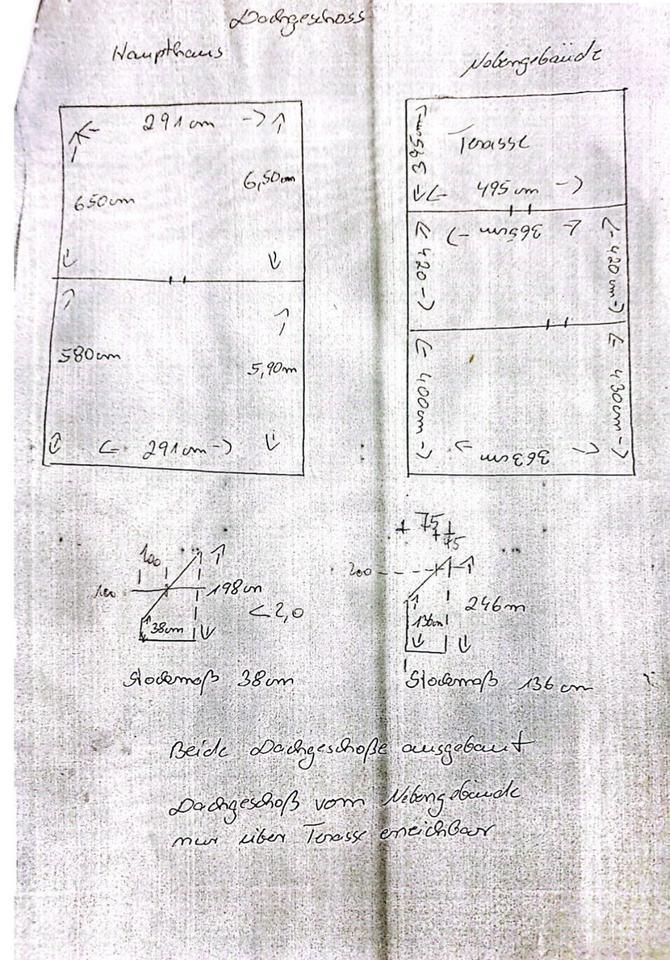 Dachgeschoss
Haupthaus
Nebengebäude
291cm
650cm
6,50m
580cm
5,90m
291cm
395cm
Terasse
495cm
365cm
420
420cm
400cm
430cm
363cm
100
100
198cm
< 2,0
38cm
Stockmaß 38cm
75
75
200
246m
136cm
Stockmaß 136cm
Beide Dachgeschoße ausgebaut
Dachgeschoß vom Nebengebäude
nur über Terasse erreichbar